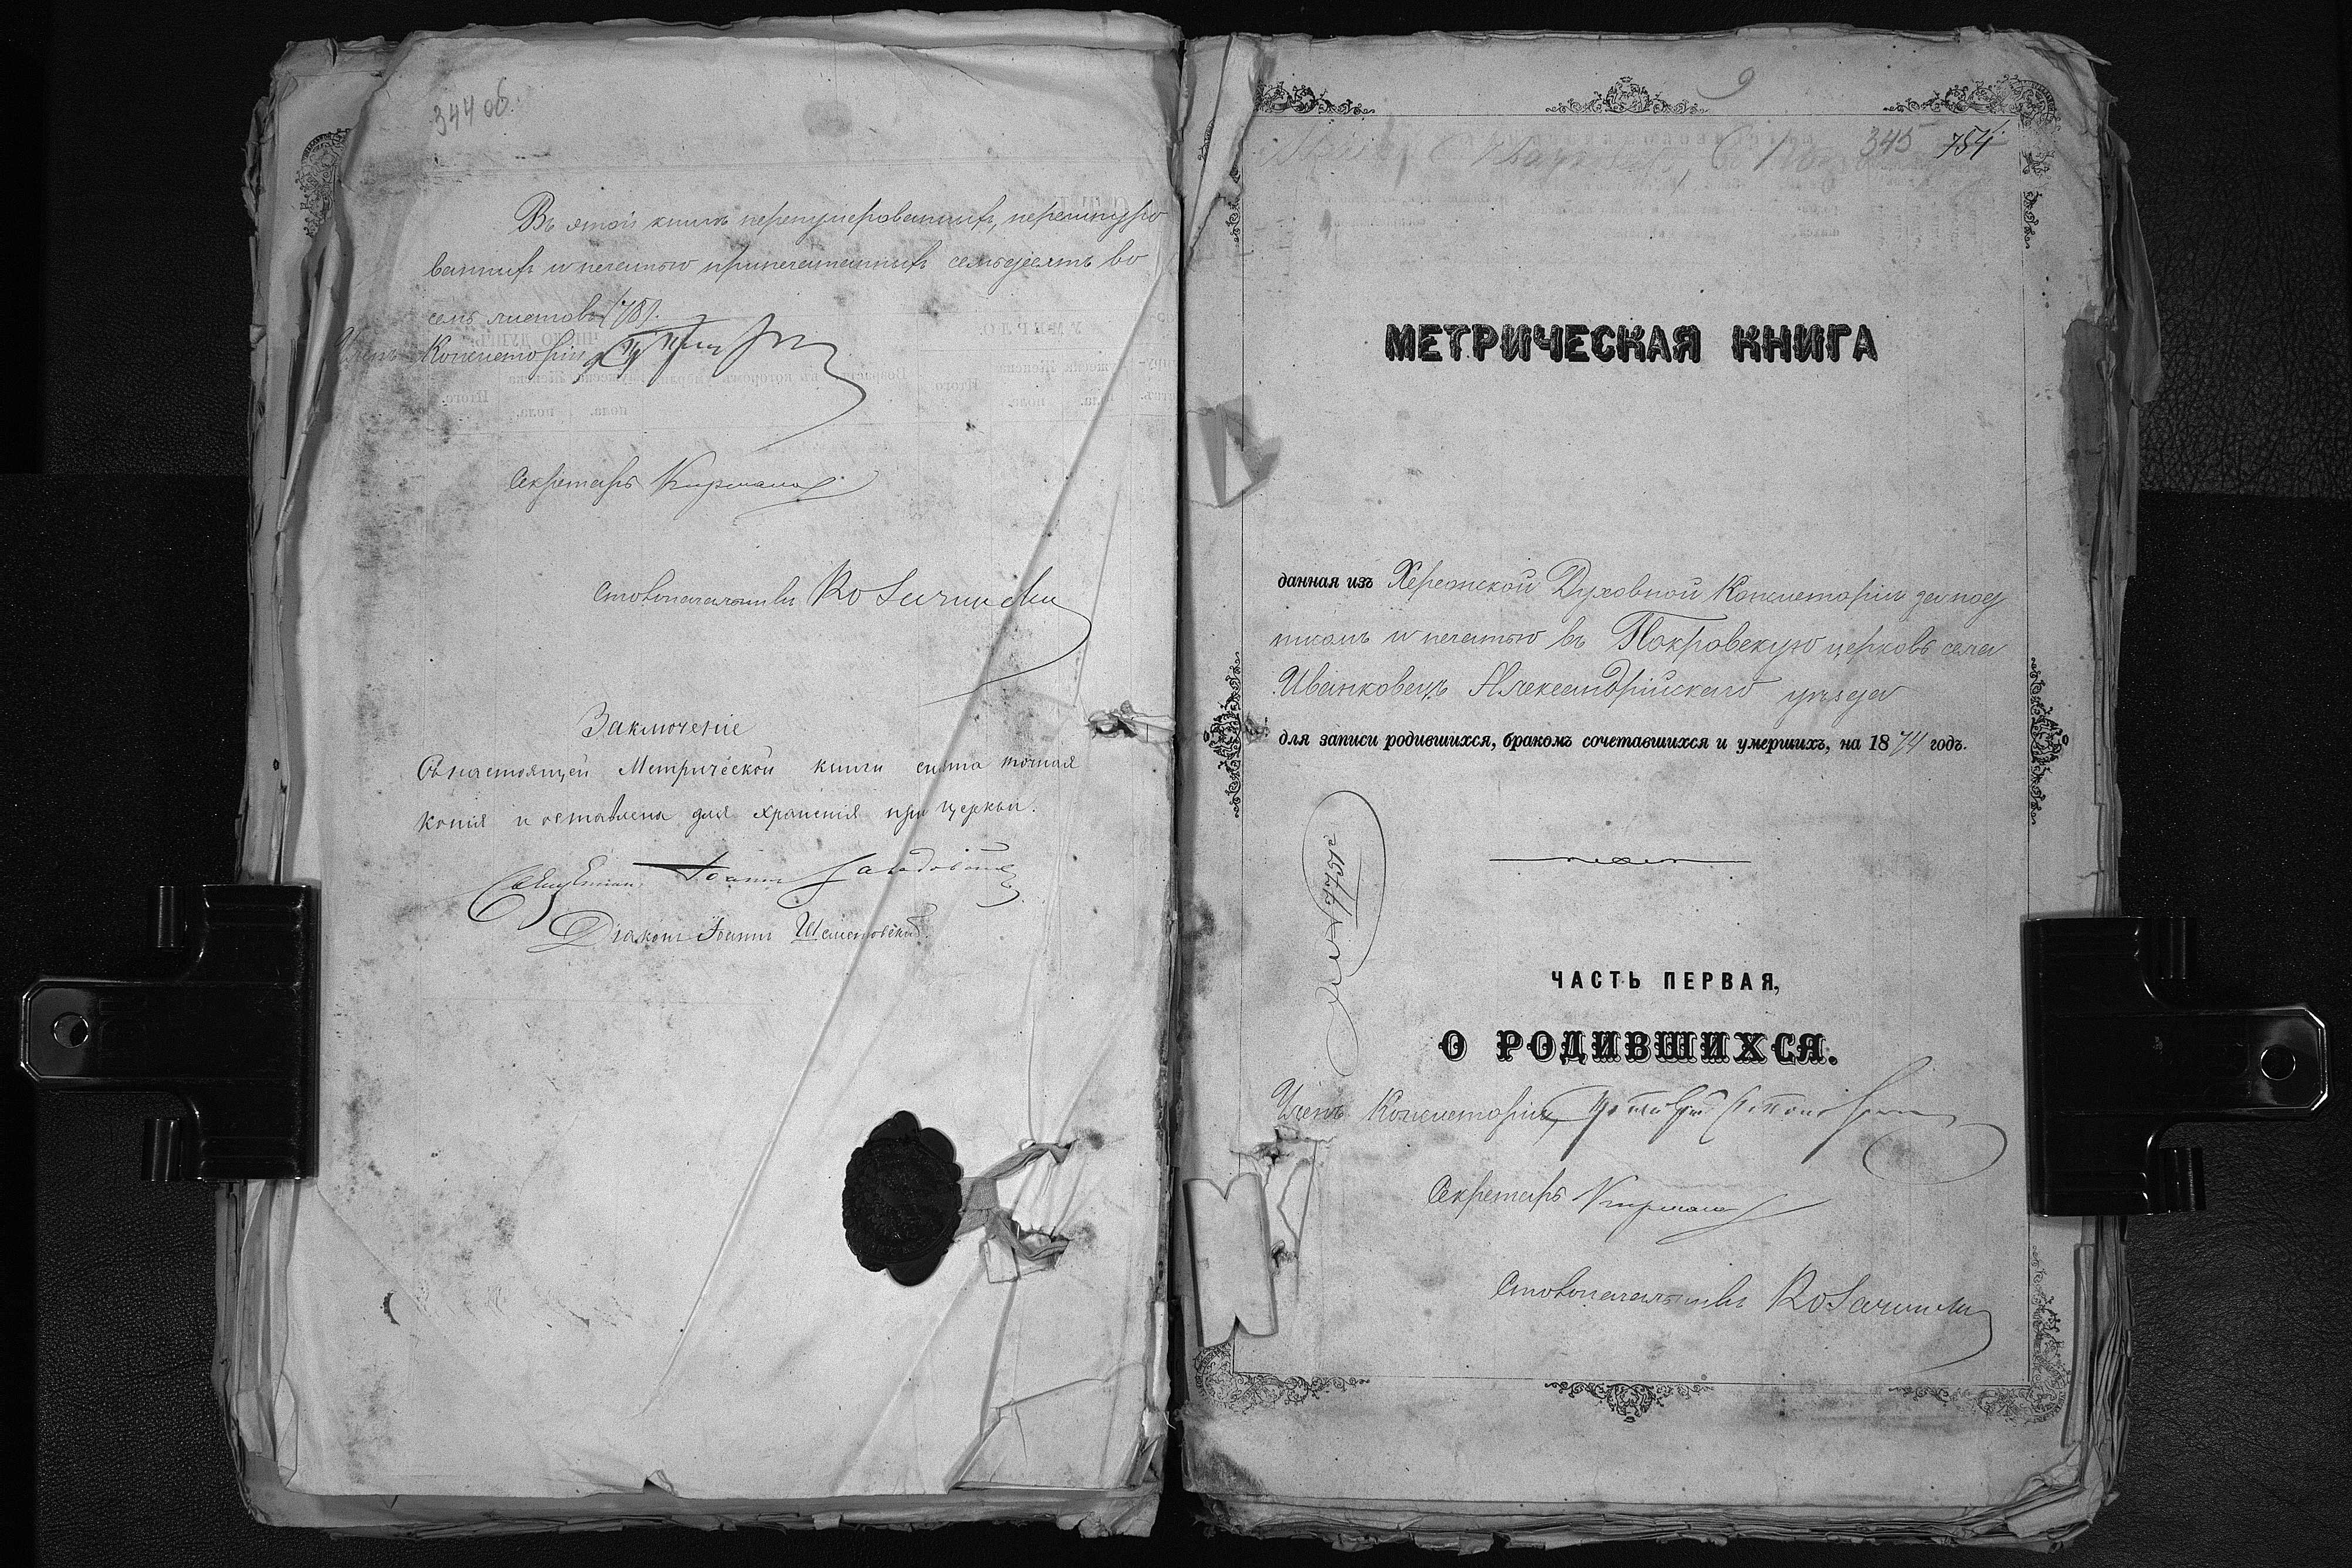 344 об.
Въ этой книгѣ перенумерованныхъ, перешнуро
ванныхъ и печатью припечатанныхъ семьдесятъ во
семь листовъ (78).
Членъ Консисторіи
Секретарь
Столоначальникъ
Заключеніе
Съ настоящей Метрической книги снята точная
копія и оставлена для храненія при церкви.
Священникъ Іоаннъ
Діаконъ Іоаннъ
9
345 754
МЕТРИЧЕСКАЯ КНИГА
данная изъ Херсонской Духовной Консисторіи за под
писомъ и печатью въ Покровскую церковь села
Иванковецъ Александрійскаго уѣзда
для записи родившихся, бракомъ сочетавшихся и умершихъ, на 1874 годъ.
ЧАСТЬ ПЕРВАЯ,
О РОДИВШИХСЯ.
Членъ Консисторіи,
Секретарь
Столоначальникъ